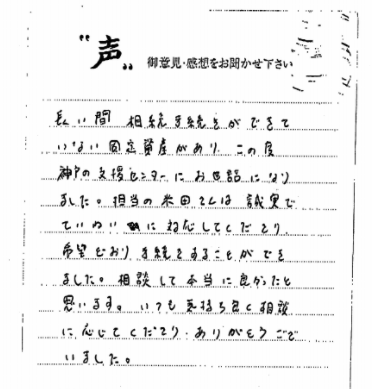 "声" 御意見・感想をお聞かせ下さい
長い間 相続手続きができて
いない固定資産があり、この度
神戸の支援センターにお世話になり
ました。担当の米田さんは 誠実で
ていねいに対応してくださり、
希望どおり手続きをすることができ
ました。相談して本当に良かったと
思います。いつも気持ち良く相談
に応じてくださり、ありがとうござ
いました。